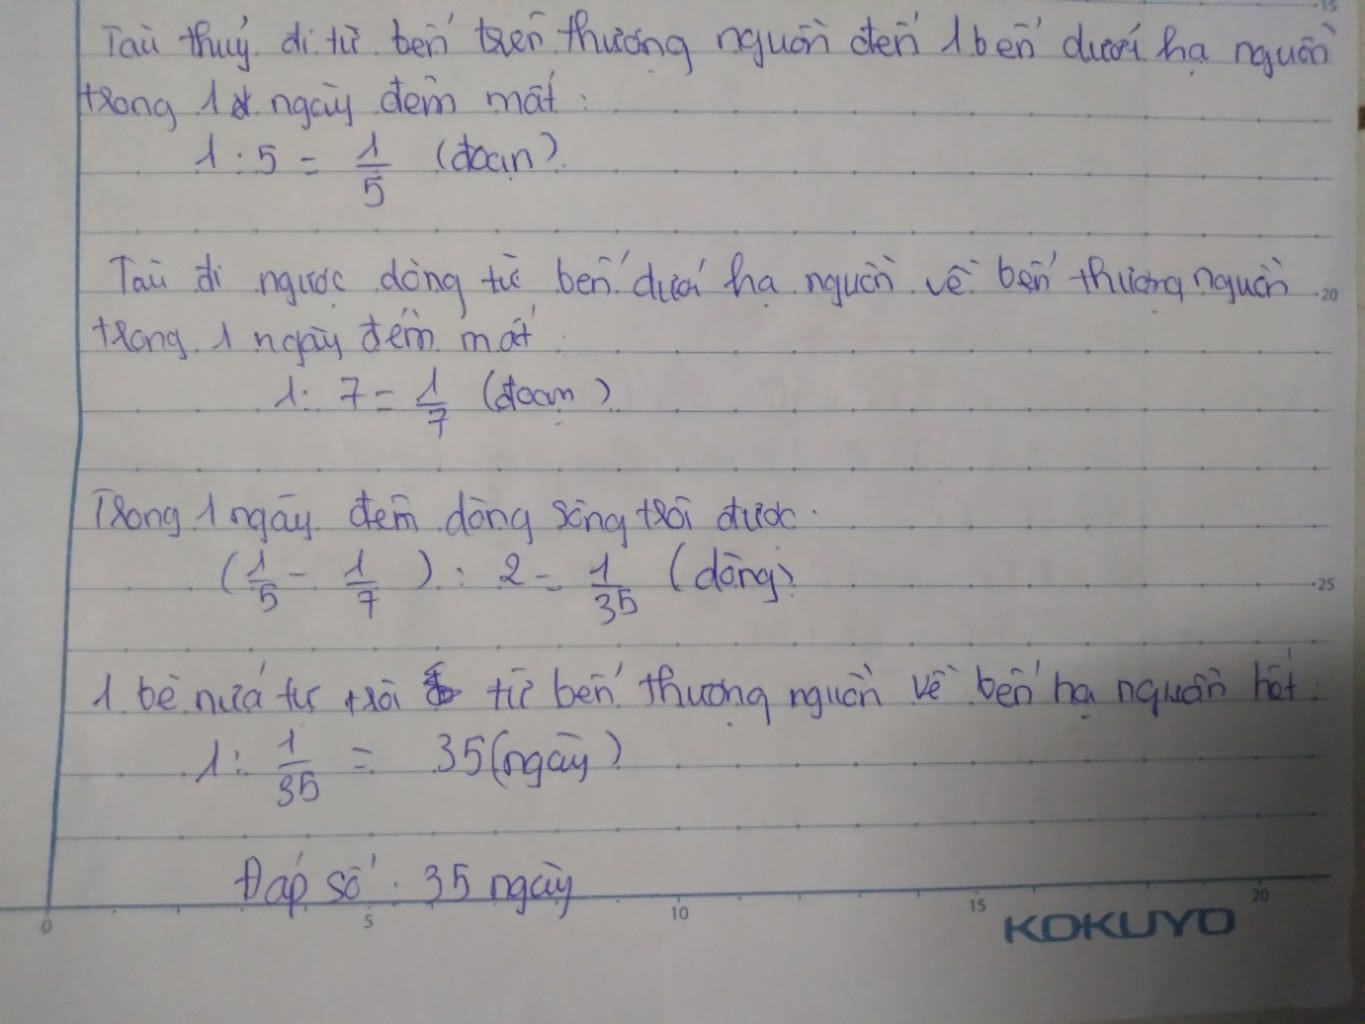 Tàu thuỷ đi từ bến trên thượng nguồn đến 1 bến dưới hạ nguồn
trong 1 ngày đêm mất:
1 : 5 = 1/5 (đoạn).
Tàu đi ngược dòng từ bến dưới hạ nguồn về bến thượng nguồn
20
trong 1 ngày đêm mất:
1 : 7 = 1/7 (đoạn)
Trong 1 ngày đêm dòng sông trôi được.
(1/5 - 1/7) : 2 = 1/35 (dòng)
25
1 bè nứa tự trôi từ bến thượng nguồn về bến hạ nguồn hết:
1 : 1/35 = 35 (ngày)
Đáp số: 35 ngày
0 5 10 15 20
KOKUYO